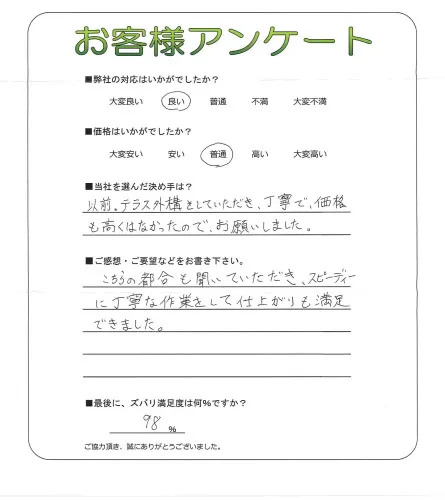 お客様アンケート
■弊社の対応はいかがでしたか?
大変良い 良い 普通 不満 大変不満
■価格はいかがでしたか?
大変安い 安い 普通 高い 大変高い
■当社を選んだ決め手は?
以前。テラス外構をしていただき、丁寧で、価格
も高くはなかったので、お願いしました。
■ご感想・ご要望などをお書き下さい。
こちらの都合も聞いていただき、スピーディー
に丁寧な作業をして仕上がりも満足
できました。
■最後に、ズバリ満足度は何%ですか?
98 %
ご協力頂き、誠にありがとうございました。